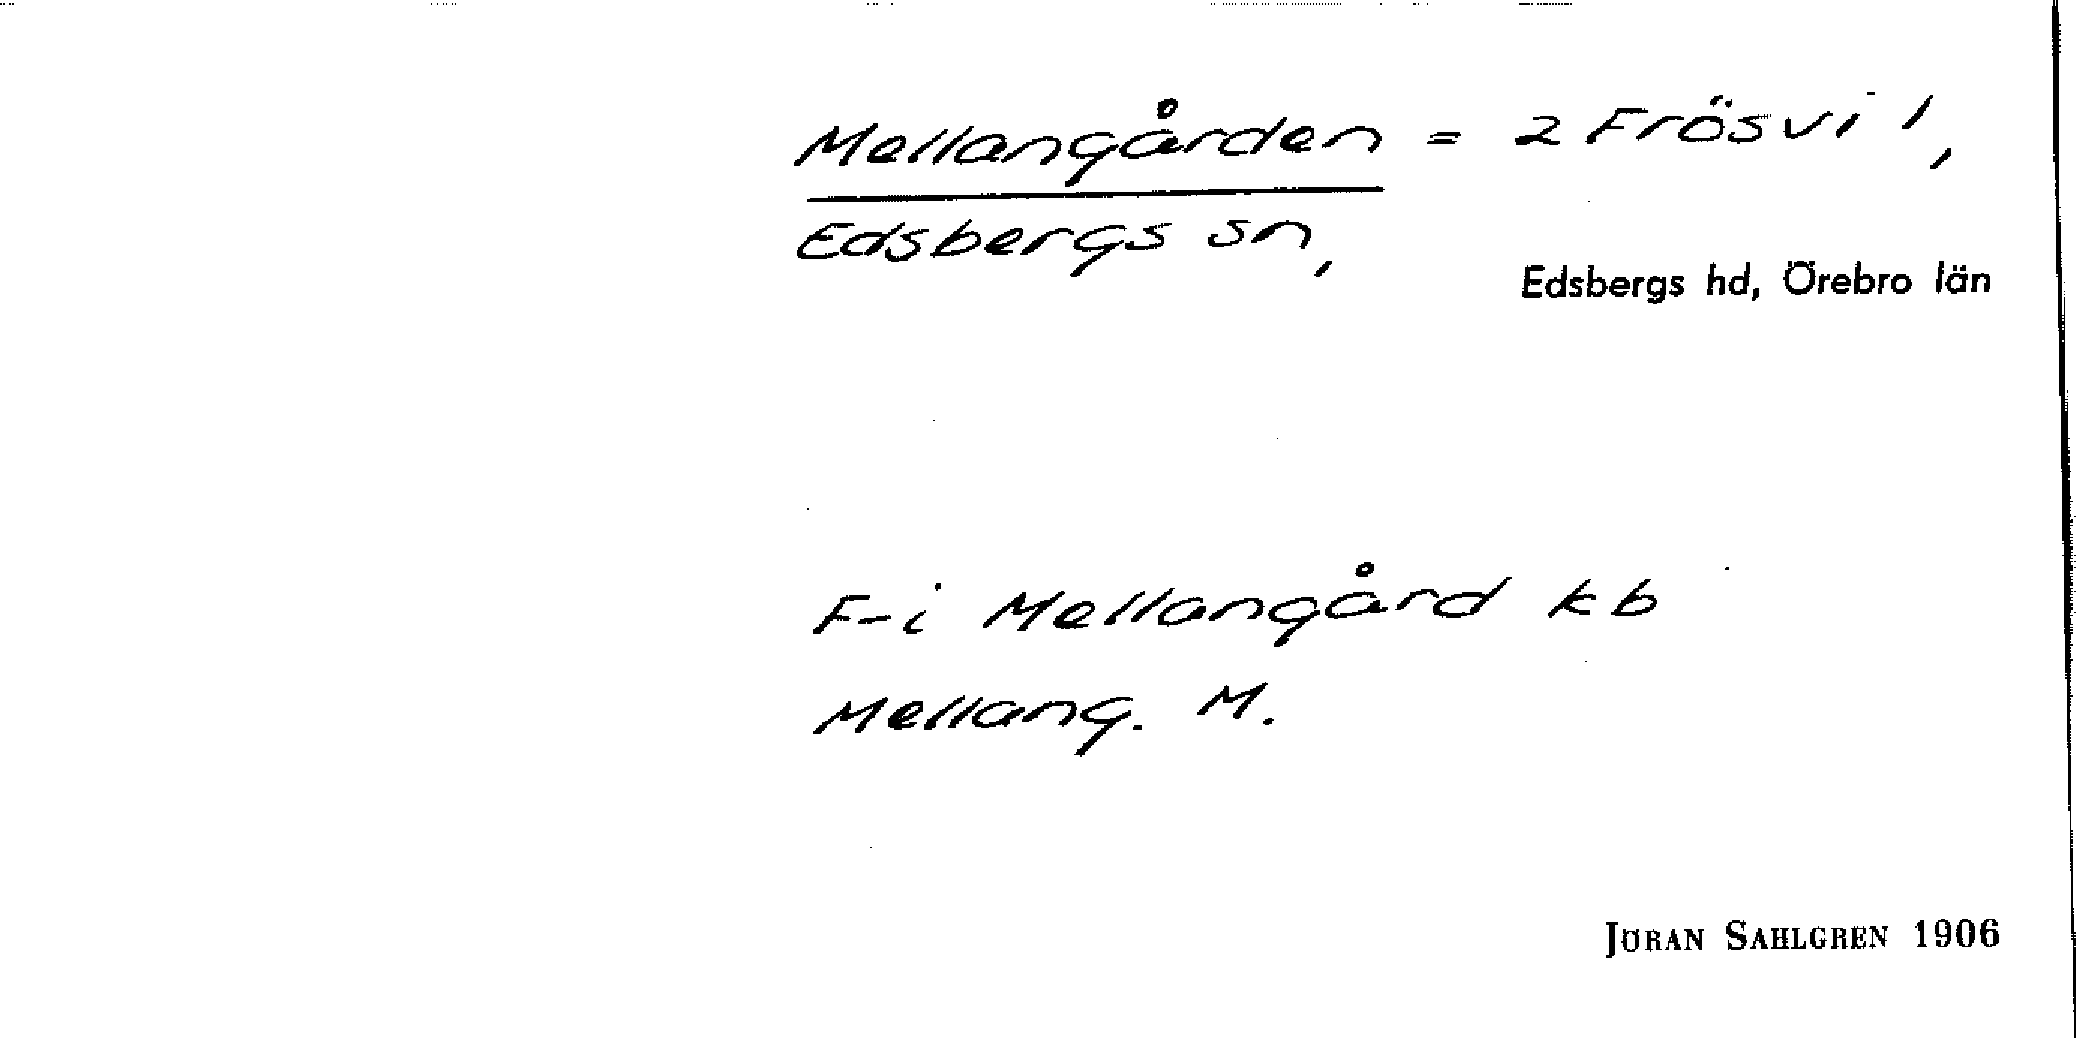 Mellangården = 2 Frösvi 1,
Edsbergs sn,
Edsbergs hd, Örebro län
F-i Mellangård kb
Mellang. M.
JÖRAN SAHLGREN 1906